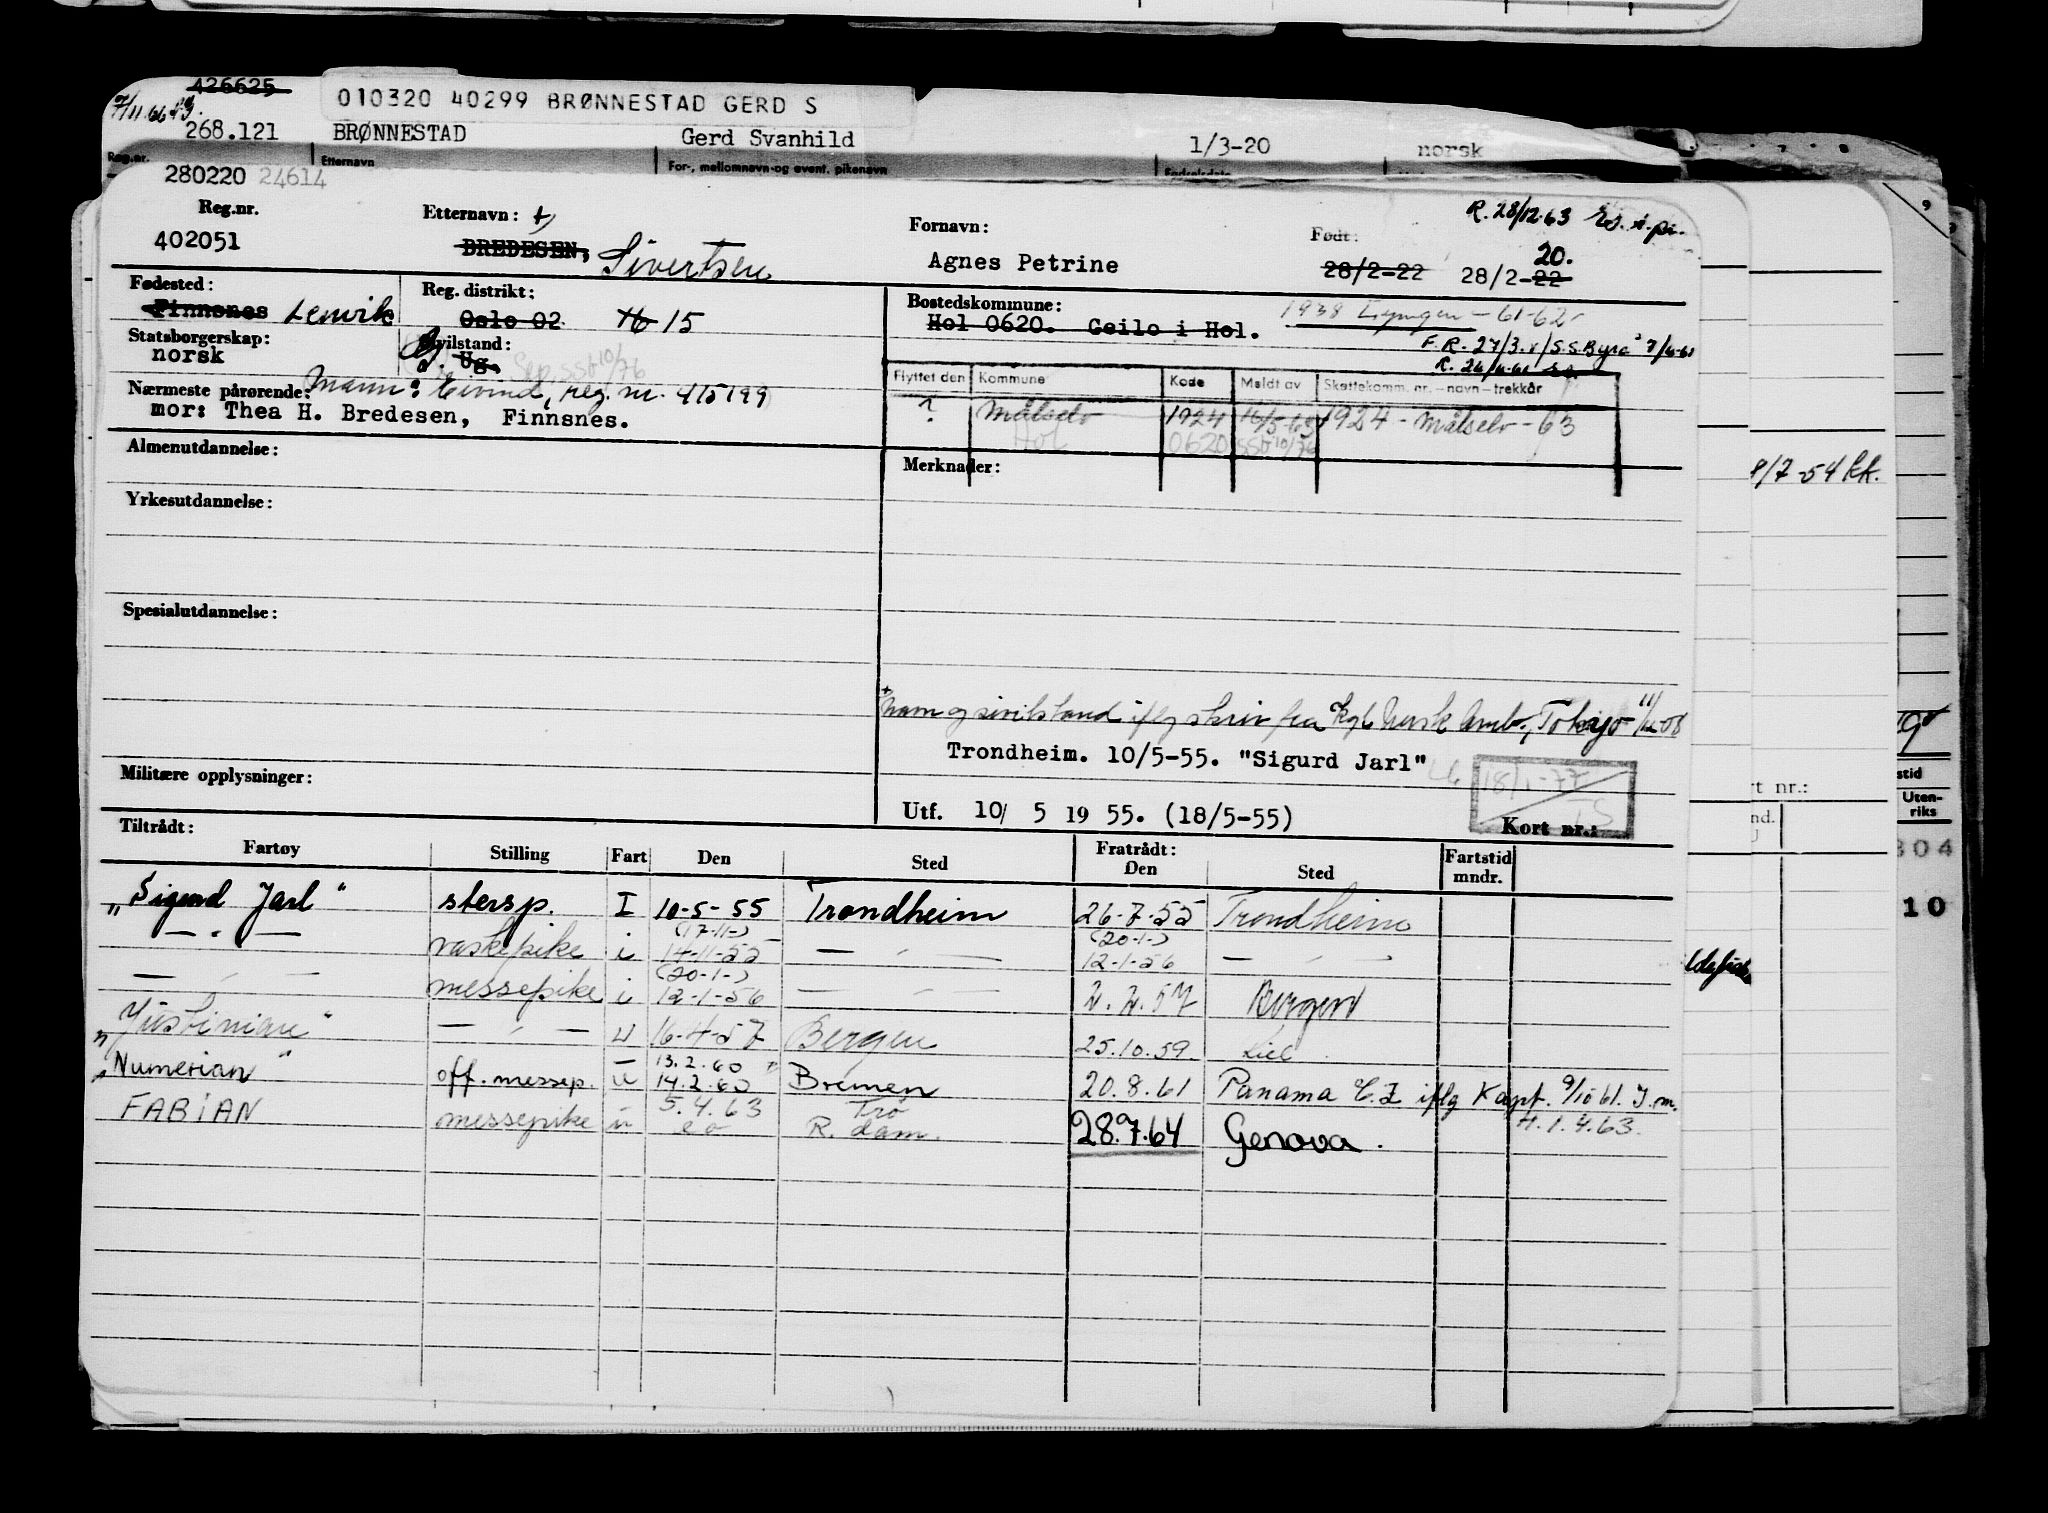 426625
7/11.66
010320 40299 BRØNNESTAD GERD S
268.121 BRØNNESTAD Gerd Svanhild 1/3-20 norsk
Reg.nr. Etternavn For-, mellomnavn-og event. pikenavn Fødselsdato
280220 24614
Reg.nr. Etternavn: +) Fornavn: Født: R. 28/12-63
402051 BREDESEN, Sivertsen Agnes Petrine 28/2-22 28/2-22 20.
Fødested: Finnsnes Lenvik Reg. distrikt: Oslo 02. 15
Bostedskommune: Hol 0620. Geilo i Hol. 1938 Lyngen - 61-62
Statsborgerskap: norsk Sivilstand: Ug. G. Sep. SSb 10/76
F. R. 27/3. v/S.S. Byrå 7/4-61
R. 26/4-61
Nærmeste pårørende: Mann: Eivind, reg. nr. 415199
mor: Thea H. Bredesen, Finnsnes.
Flyttet den Kommune Kode Meldt av Skattekomm. nr. – navn – trekkår
? Målselv 1924 16/5-63 1924 - Målselv - 63
Hol 0620 SSb 10/76
Almenutdannelse:
Merknader:
Yrkesutdannelse:
8/7-54 kk.
Spesialutdannelse:
+ Navn og sivilstand iflg skriv fra Kgl. Norsk Amb., Tokyo 11/12-58
Trondheim. 10/5-55. "Sigurd Jarl"
18/1-77
TS
Militære opplysninger:
Utf. 10/ 5 19 55. (18/5-55) Kort nr.:
Tiltrådt: Fratrådt:
Fartøy Stilling Fart Den Sted Den Sted Fartstid mndr.
"Sigurd Jarl" stersp. I 10-5-55 Trondheim 26-7-55 Trondheim
— " — vaskepike i (17-11-) 14-11-55 — " — (20-1-) 12-1-56 — " —
— " — messepike i (20-1-) 12-1-56 — " — 2.2.57 Bergen
"Justinian" — " — u 16-4-57 Bergen 25.10.59. Kiel
"Numerian" off. messep. u 13.2.60 14.2.60 Bremen 20.8.61 Panama C.Z iflg Kapt. 9/10 61. J.m.
FABIAN messepike u 5.4.63 Tro R. dam. 28.7.64 Genova. H.1.4.63.
rt nr.:
Uten-
riks
304
10